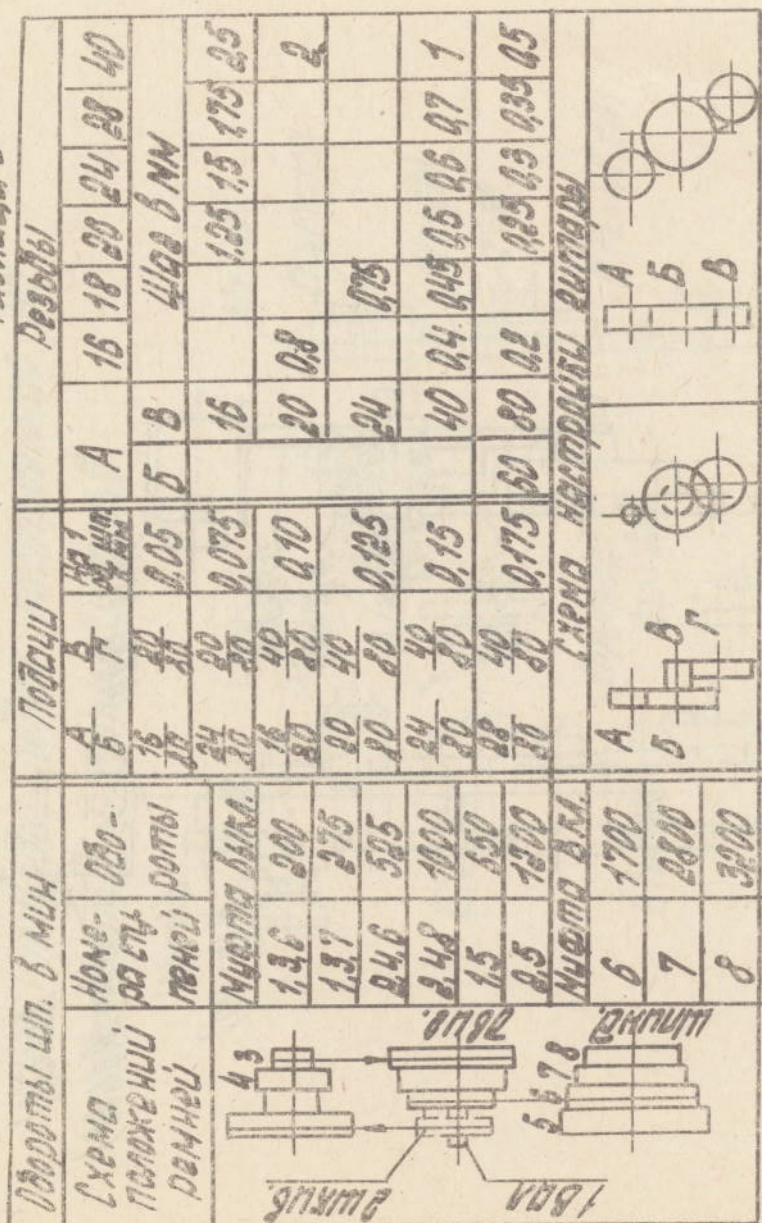 Таблица 2
Обороты шп. в мин
Схема положений ремней
Номера ступеней
Обо-роты
Муфта выкл.
1,3,6 200
1,3,7 275
2,4,6 525
2,4,8 1000
1,5 650
2,5 1300
Муфта вкл.
6 1700
7 2800
8 3200
4 3
двиг.
5 6 7 8
шпинд.
2 шкив.
1 вал
Подачи
А/Б В/Г На 1 об. шп. мм
16/80 20/80 0.05
24/80 20/80 0,075
16/80 40/80 0,10
20/80 40/80 0,125
24/80 40/80 0,15
28/80 40/80 0,175
Резьбы
А 16 18 20 24 28 40
Б В Шаг в мм
16 1,25 1,5 1,75 2,5
20 0,8 2
24 0,75
40 0,4 0,45 0,5 0,6 0,7 1
60 80 0,2 0,25 0,3 0,35 0,5
Схема настройки гитары
А
Б
В
Г
А
Б
В